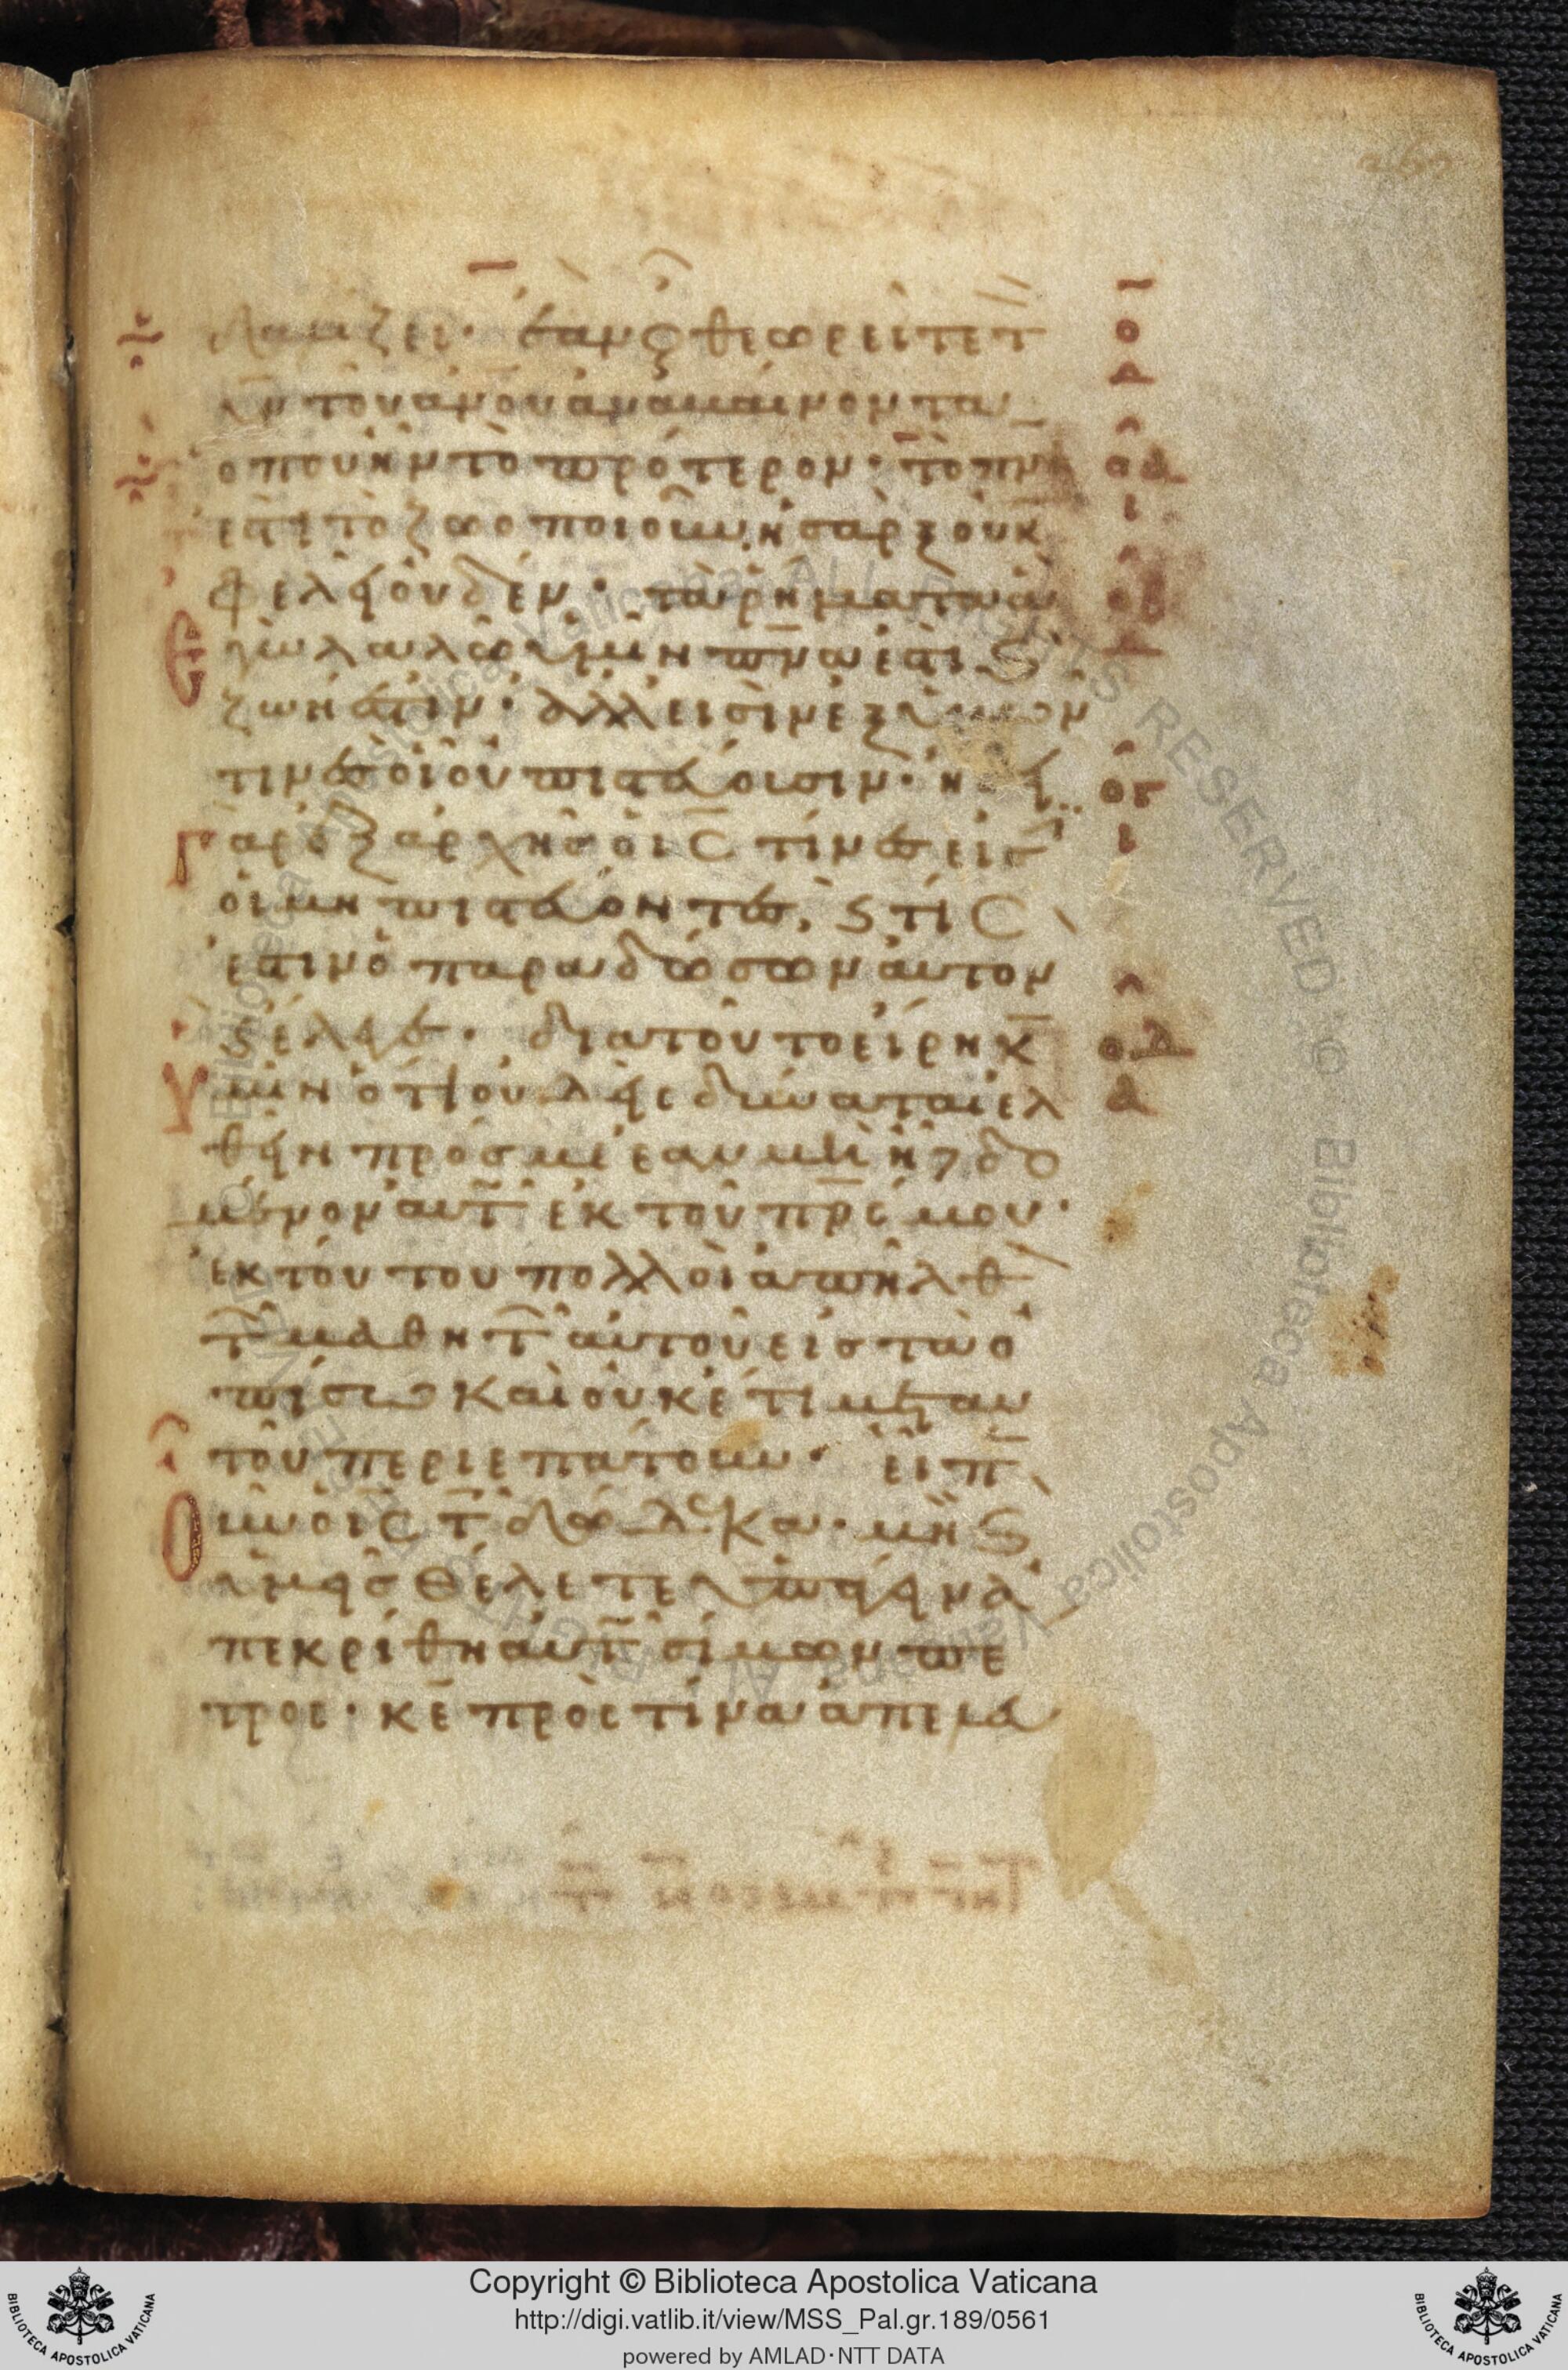 λίζει· ἐὰν οὖν θεωρεῖτε τ
υν τοῦ ἀνου ἀναβαίνοντα
ὅπου ἦν τὸ πρότερον· τὸ πνα
ἐστι τὸ ζωοποιοῦν, ἡ σὰρξ οὐκ
φελεῖ οὐδέν· τὰ ῥήματα ἃ
ἐγὼ λαλῶ ὑμῖν πνα ἐστι ϗ
ζωή ἐστιν· ἀλλ εἰσὶν ἐξ ὑμῶν
τινὲς οἳ οὐ πιστεύουσιν· ἤδει
Γὰρ ἐξ ἀρχῆς ὁ ις τίνες εἰσὶ
οἱ μὴ πιστεύοντες, ϗ τίς
ἐστιν ὁ παραδώσων αὐτὸν
ϗ ἔλεγε· διατοῦτο εἴρηκ
Ὑμῖν ὅτι οὐδεὶς δύναται ἐλ
θεῖν πρός με ἐὰν μὴ ᾖ δεδο
μένον αὐτ ἐκ τοῦ πρς μου·
ἐκ τούτου πολλοὶ ἀπῆλθ
τ μαθητ αὐτοῦ εἰς τὰ ὀ
πίσω καὶ οὐκέτι μετ αυ
τοῦ περιεπάτουν· εἶπ
Οὖν ὁ ις τ δώδεκα· μὴ ϗ
ὑμεῖς θέλετε ὑπάγειν ἀ
πεκρίθη αὐτ σίμων πέ
τρος· κε πρὸς τίνα ἀπελευ
ο
οα
οβ
ογ
ι
οδ
α
Copyright © Biblioteca Apostolica Vaticana
http://digi.vatlib.it/view/MSS_Pal.gr.189/0561
powered by AMLAD·NTT DATA
BIBLIOTECA APOSTOLICA VATICANA
BIBLIOTECA APOSTOLICA VATICANA